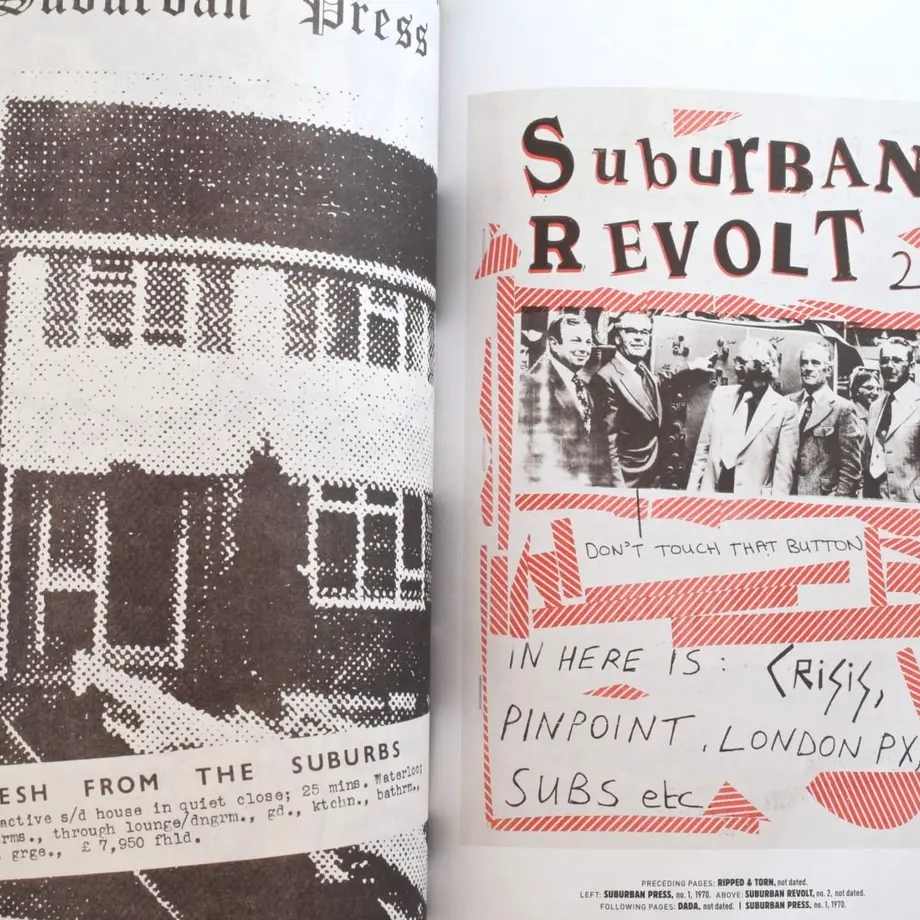 Suburban Press
ESH FROM THE SUBURBS
active s/d house in quiet close; 25 mins. Waterloo;
rms., through lounge/dngrm., gd., ktchn., bathrm.,
grge., £7,950 fhld.
SuburBAN
REVOLT 2
DON'T TOUCH THAT BUTTON
IN HERE IS: CRISIS,
PINPOINT, LONDON PX,
SUBS etc
PRECEDING PAGES: RIPPED & TORN, not dated.
LEFT: SUBURBAN PRESS, no. 1, 1970. ABOVE: SUBURBAN REVOLT, no. 2, not dated.
FOLLOWING PAGES: DADA, not dated. | SUBURBAN PRESS, no. 1, 1970.